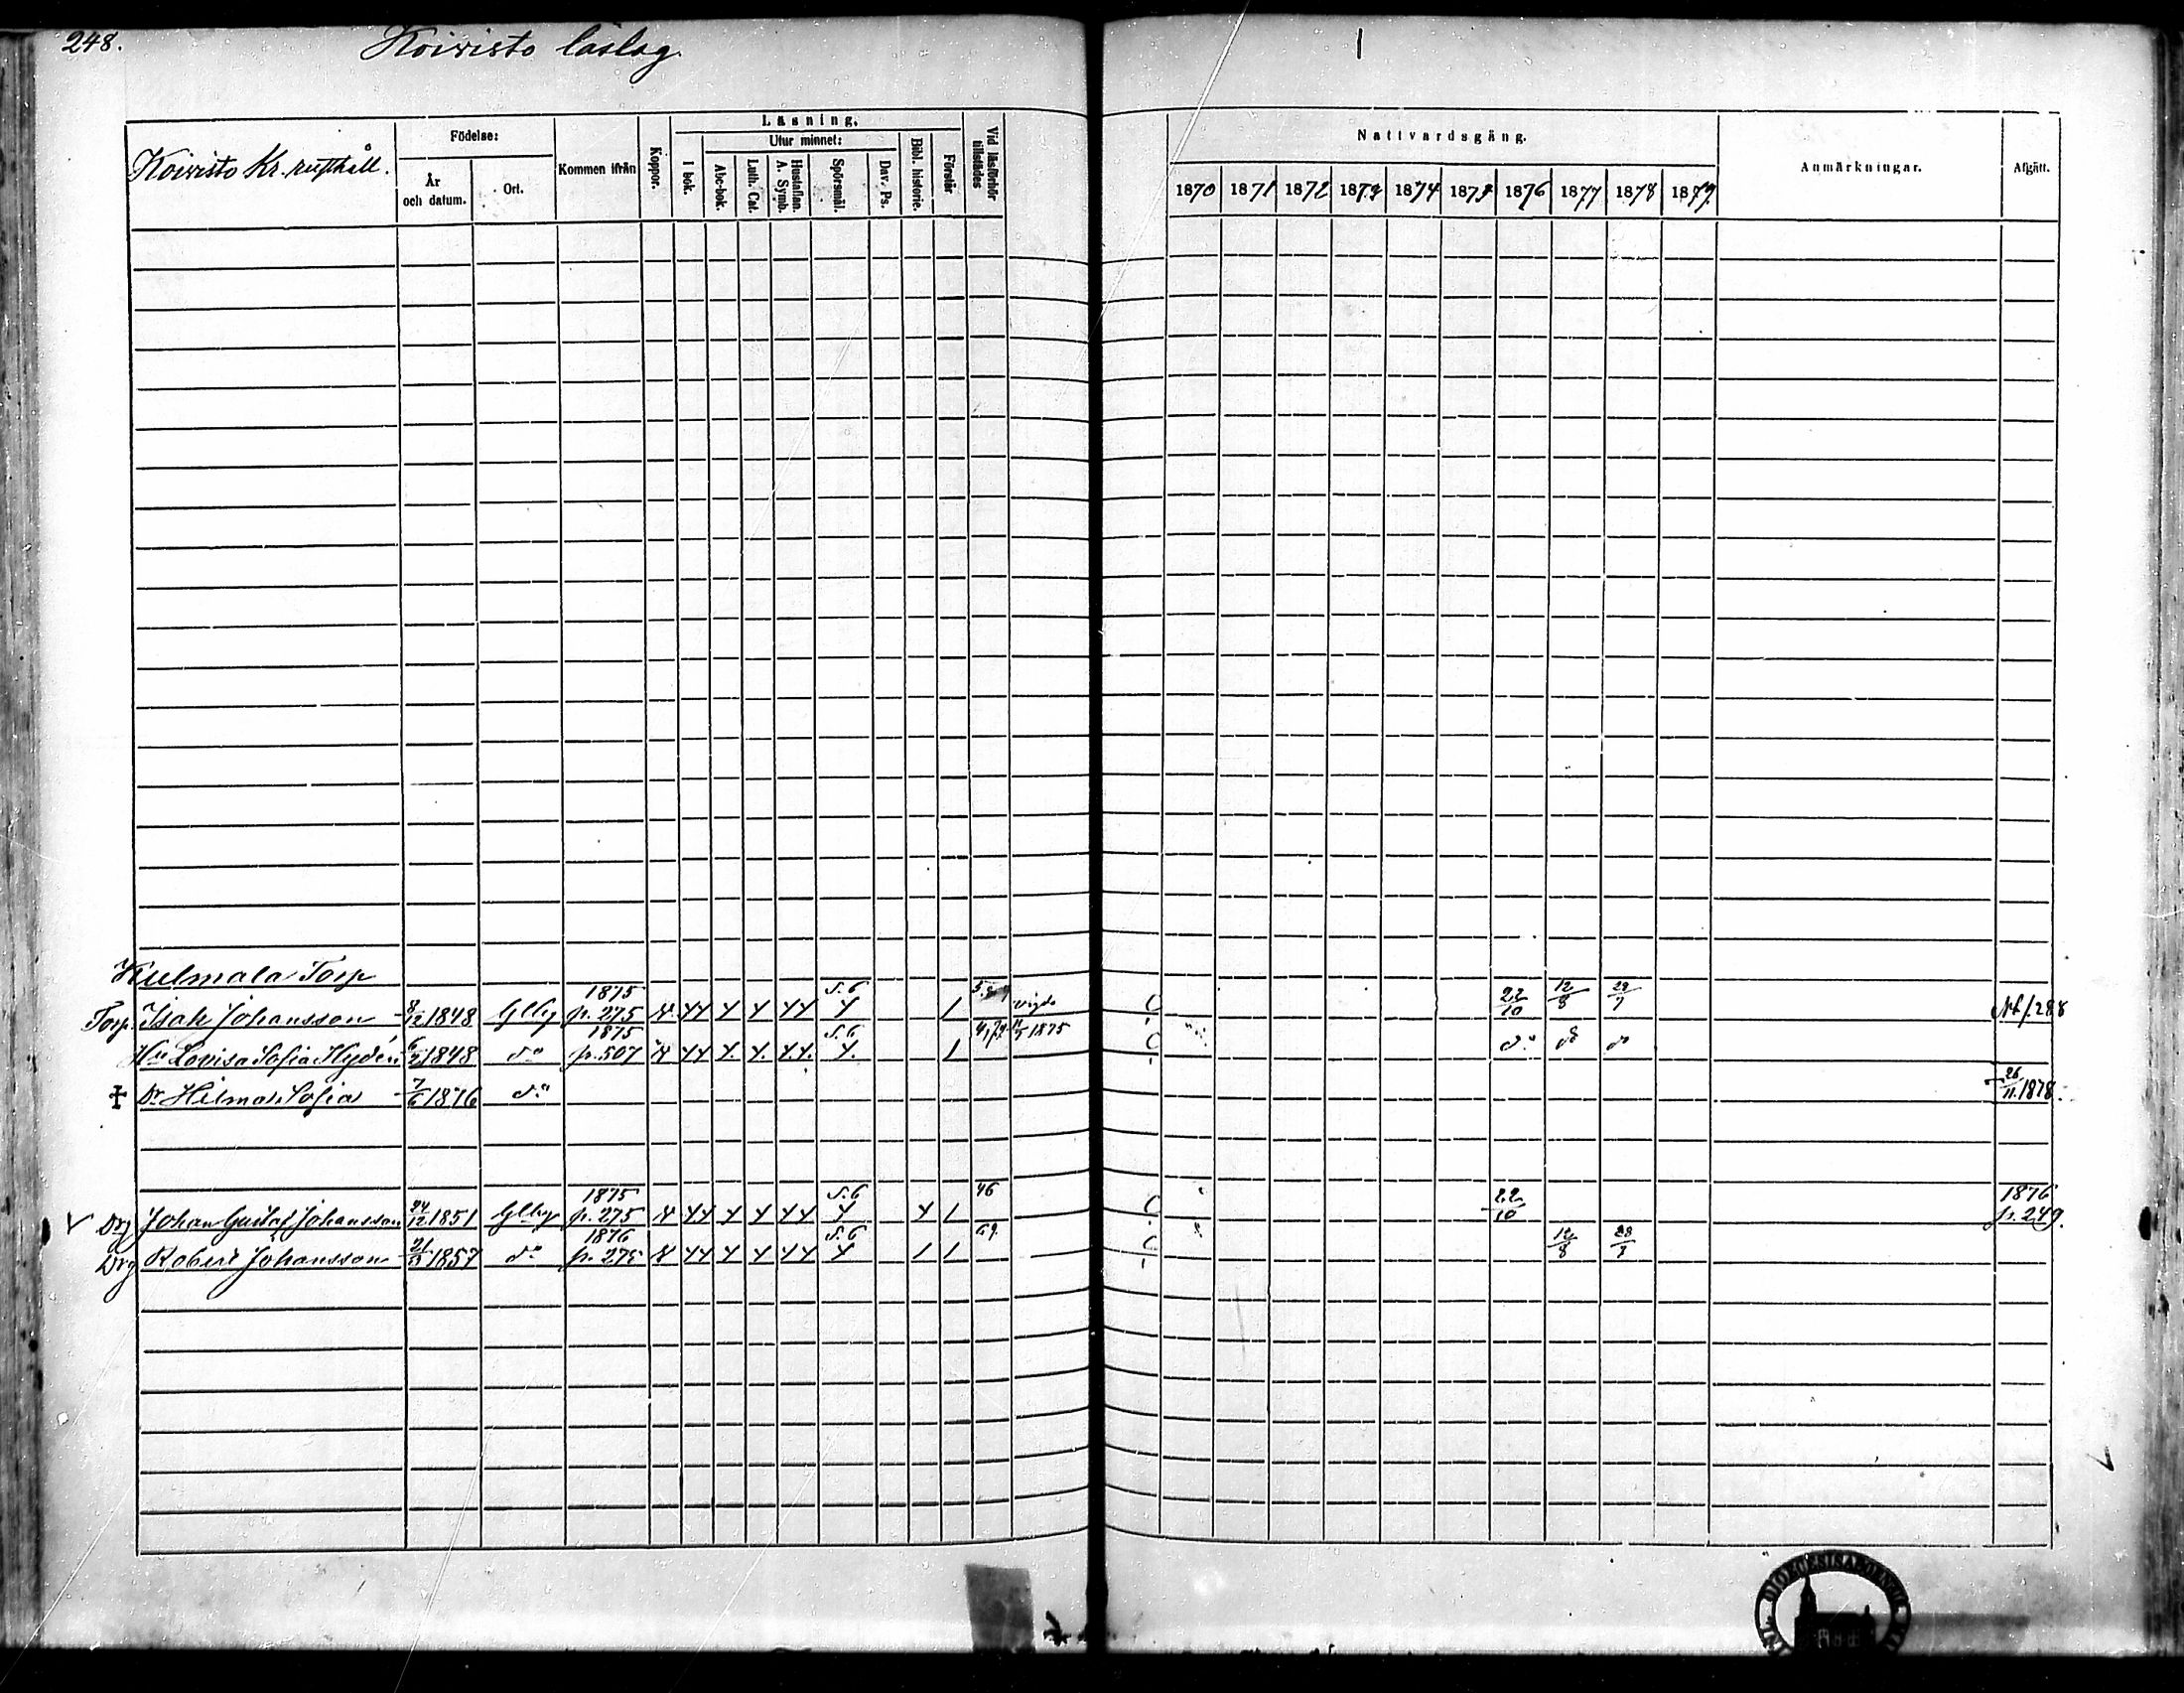 248. Koivisto läslag
Koivisto Kr. rusthåll.
Födelse:
År och datum.
Ort.
Kommen ifrån
Koppor.
Läsning.
I bok.
Utur minnet:
Abc-bok.
Luth. Cat.
Hustaflan. A. Symb.
Spörsmål.
Dav. Ps.
Bibl. historie.
Förstår
Vid läsförhör tillstädes
Nattvardsgång.
1870 1871 1872 1873 1874 1875 1876 1877 1878 1879
Anmärkningar.
Afgått.
Kulmala Torp
Torp. Isak Johansson 8/12 1848 Glby 1875 p. 275 S. 6 vigde 22/10 12/8 29/7
Hu Lovisa Sofia Hydén 1848 do 1875 p. 507 S. 6 1875 do do do
Dr Hilma Sofia 7/6 1876 do 26/11 1878.
Drg Johan Gustaf Johansson 24/12 1851 Glby 1875 p. 275 S. 6 46 22/10 1876 p. 249.
Drg Robert Johansson 1857 do 1876 p. 275 S. 6 69 12/8